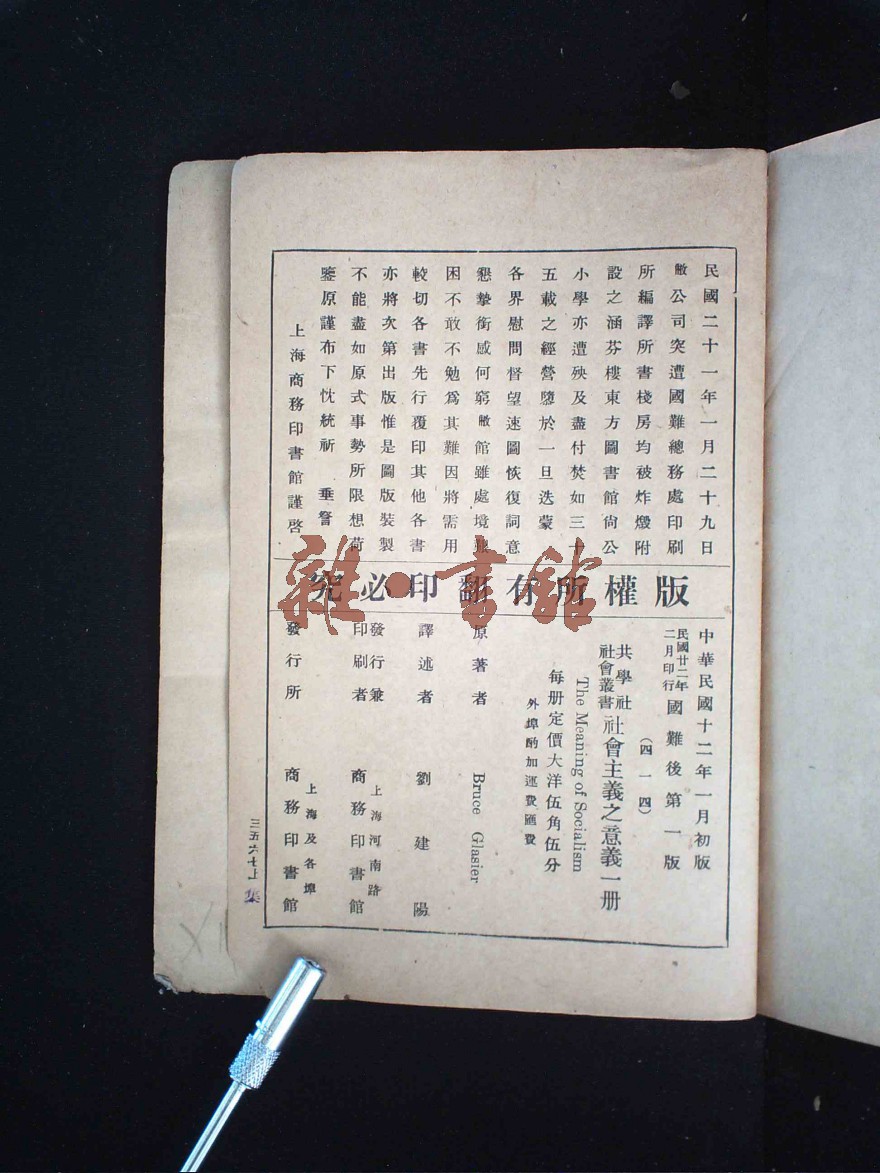 民國二十一年一月二十九日
敝公司突遭國難總務處印刷
所編譯所書棧房均被炸燬附
設之涵芬樓東方圖書館尙公
小學亦遭殃及盡付焚如三十
五載之經營墮於一旦迭蒙
各界慰問督望速圖恢復詞意
懇摯銜感何窮敝館雖處境
困不敢不勉爲其難因將需用
較切各書先行覆印其他各書
亦將次第出版惟是圖版裝製
不能盡如原式事勢所限想荷
鑒原謹布下忱統祈 垂詧
上海商務印書館謹啓
版權所有翻印必究
雜·書館
中華民國十二年一月初版
民國廿二年二月印行 國難後第一版
(四一四)
共學社社會叢書 社會主義之意義一册
The Meaning of Socialism
每册定價大洋伍角伍分
外埠酌加運費匯費
原著者 Bruce Glasier
譯述者 劉建陽
發行兼印刷者 上海河南路 商務印書館
發行所 上海及各埠 商務印書館
三五六七上
集